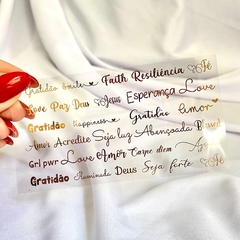 Gratidão Smile Faith Resiliência Fé
Love Paz Deus Jesus Esperança Love
Gratidão Happiness Gratidão Amor
Amor Acredite Seja luz Abençoada Blessed
Grl pwr Love Amor Carpe diem
Gratidão Iluminada Deus Seja forte Fé